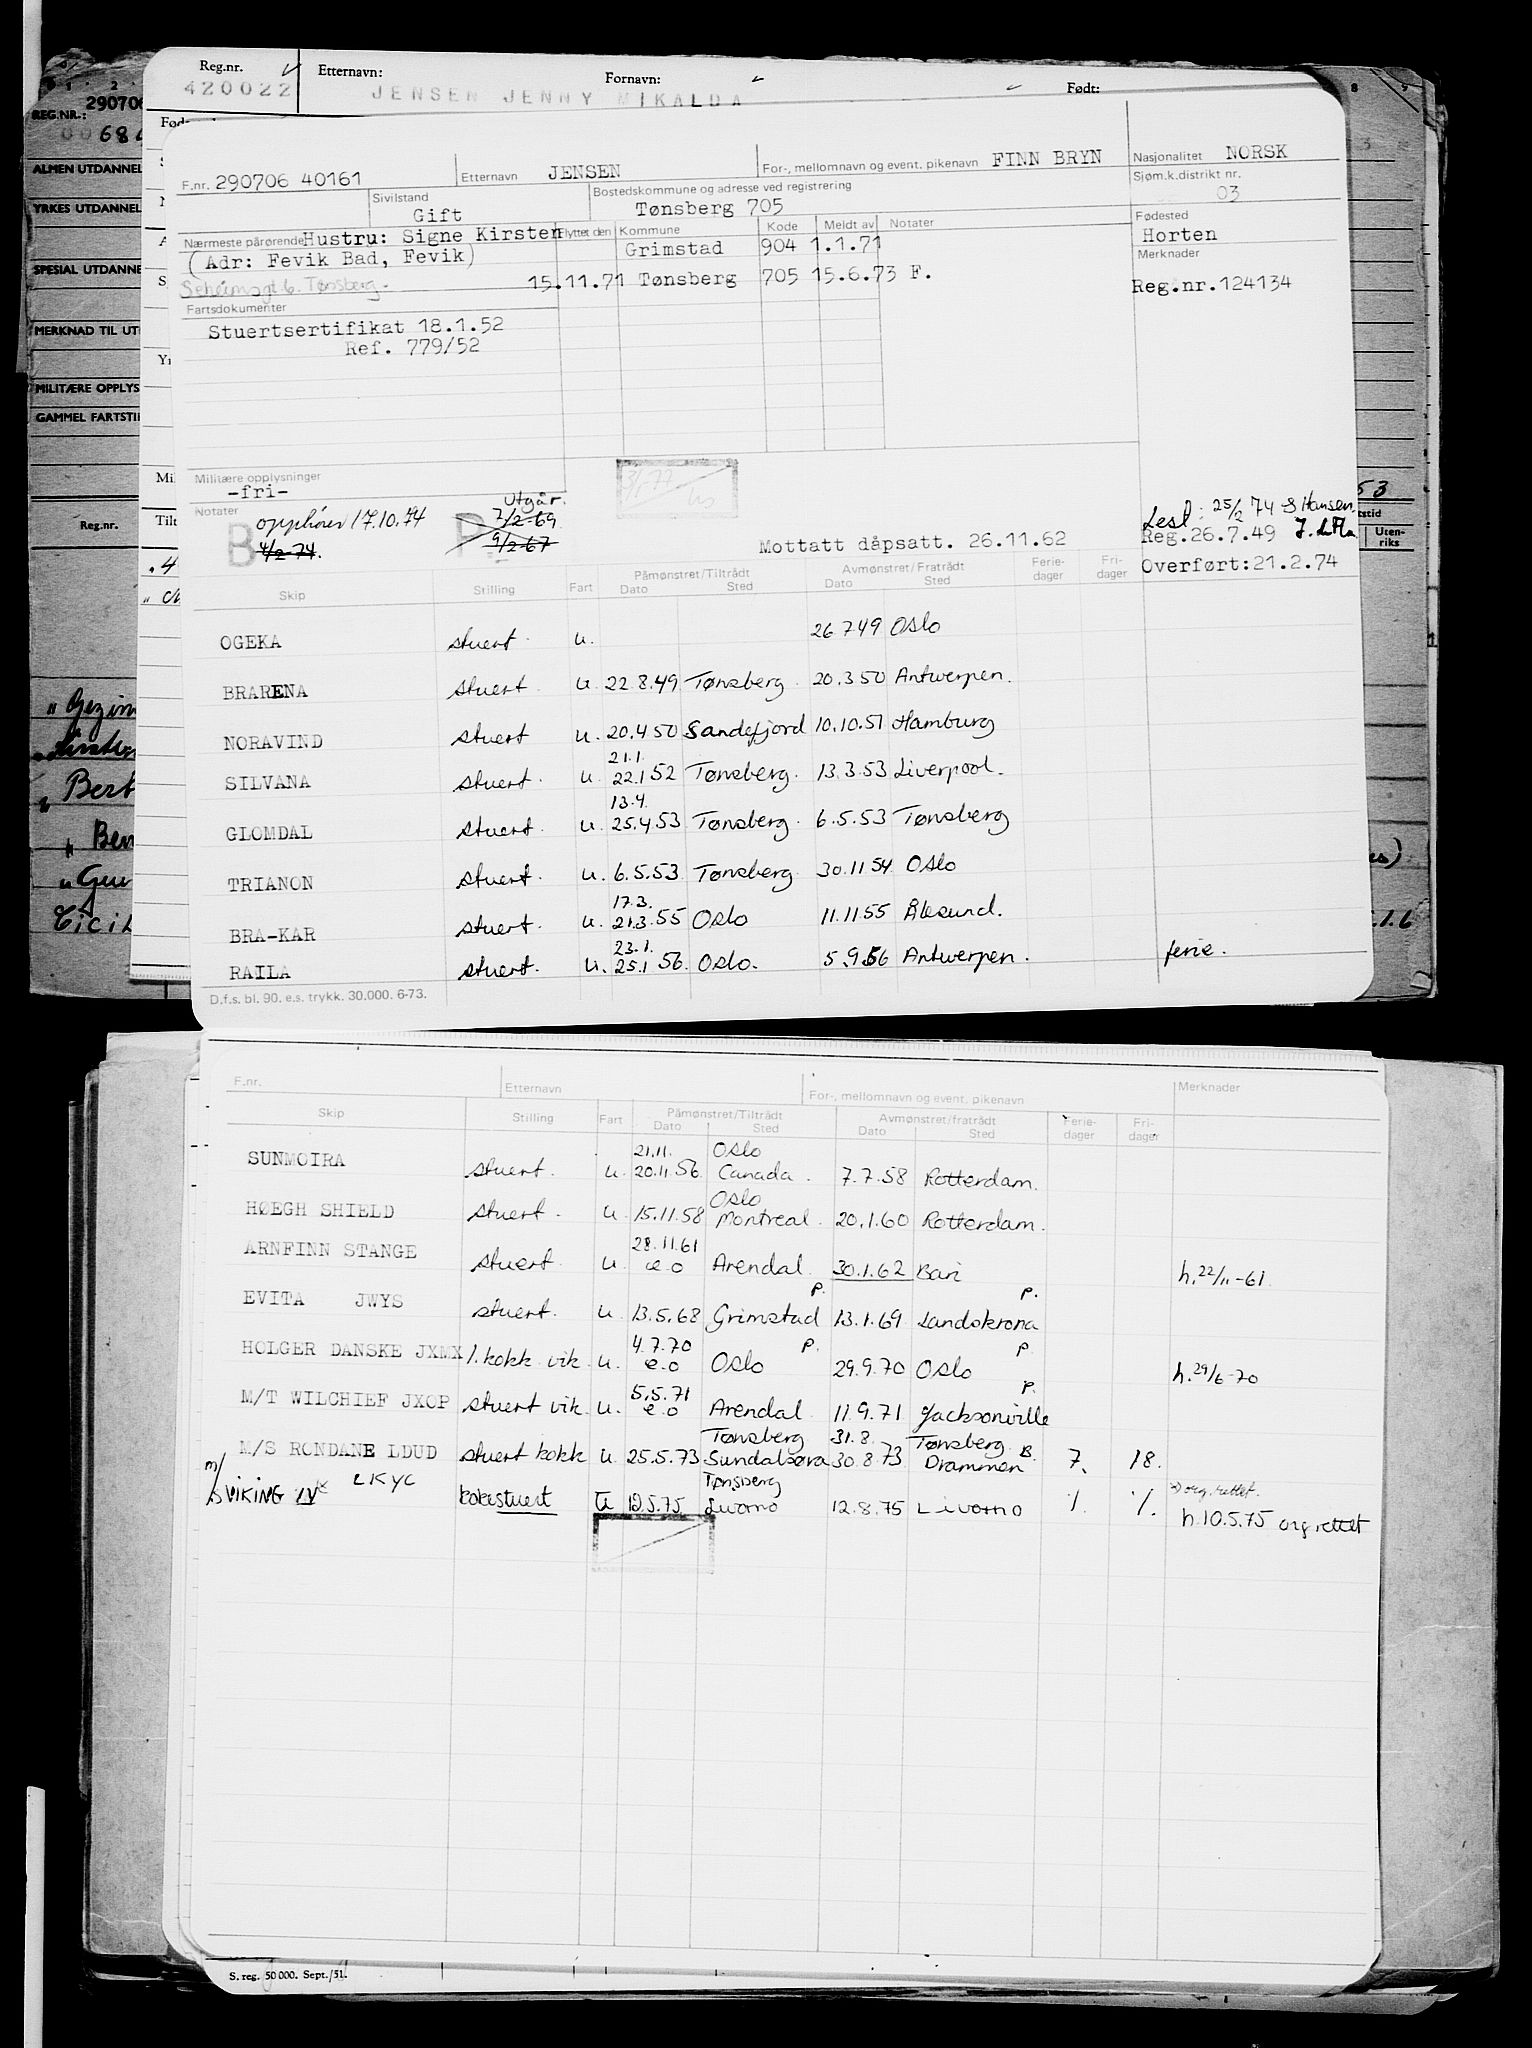 Reg.nr. Etternavn: Fornavn: Født:
420022 JENSEN JENNY MIKALDA
1 2 8 9
REG.NR.: 290706
ALMEN UTDANNEL
YRKES UTDANNEL
SPESIAL UTDANNE
MERKNAD TIL UT
MILITÆRE OPPLYS
GAMMEL FARTSTI
Reg.nr.
F.nr. 290706 40161 Etternavn JENSEN For-, mellomnavn og event. pikenavn FINN BRYN Nasjonalitet NORSK
Sivilstand Bostedskommune og adresse ved registrering Sjøm.k.distrikt nr.
Gift Tønsberg 705 03
Nærmeste pårørende Hustru: Signe Kirsten Flyttet den Kommune Kode Meldt av Notater Fødested
(Adr: Fevik Bad, Fevik) Grimstad 904 1.1.71 Horten
Merknader
Tønsberg. 15.11.71 Tønsberg 705 15.6.73 F. Reg.nr.124134
Fartsdokumenter
Stuertsertifikat 18.1.52
Ref. 779/52
Militære opplysninger
-fri-
Notater
B opphører 17.10.74 Utgår.
4/2-74. 7/2-69
9/2-67
3/1-77
Mottatt dåpsatt. 26.11.62
Lest: 25/2 74 S Hansen.
Reg.26.7.49
Overført:21.2.74
Skip Stilling Fart Påmønstret/Tiltrådt Avmønstret/Fratrådt Ferie-dager Fri-dager
Dato Sted Dato Sted
OGEKA stuert u. 26.7.49 Oslo
BRARENA stuert. u. 22.8.49 Tønsberg. 20.3.50 Antwerpen.
NORAVIND stuert u. 20.4.50 Sandefjord 10.10.51 Hamburg
21.1.
SILVANA stuert. u. 22.1.52 Tønsberg. 13.3.53 Liverpool.
13.4.
GLOMDAL stuert. u. 25.4.53 Tønsberg. 6.5.53 Tønsberg
TRIANON stuert. u. 6.5.53. Tønsberg. 30.11.54 Oslo
17.3.
BRA-KAR stuert. u. 21.3.55 Oslo 11.11.55 Ålesund.
23.1.
RAILA stuert. u. 25.1.56. Oslo. 5.9.56 Antwerpen. ferie.
D.f.s. bl. 90. e.s. trykk. 30.000. 6-73.
F.nr. Etternavn For-, mellomnavn og event. pikenavn Merknader
Skip Stilling Fart Påmønstret/Tiltrådt Avmønstret/fratrådt Ferie-dager Fri-dager
Dato Sted Dato Sted
21.11. Oslo
SUNMOIRA stuert. u. 20.11.56. Canada. 7.7.58 Rotterdam.
Oslo
HØEGH SHIELD stuert. u. 15.11.58 Montreal. 20.1.60 Rotterdam.
28.11.61
ARNFINN STANGE stuert. u. e.o Arendal 30.1.62 Bari h.22/11-61.
p. p.
EVITA JWYS stuert. u. 13.5.68 Grimstad 13.1.69 Landskrona
4.7.70 p. p.
HOLGER DANSKE JXMX 1.kokk vik. u. e.o Oslo 29.9.70 Oslo h.29/6-70
5.5.71 p.
M/T WILCHIEF JXOP stuert vik. u. e.o Arendal. 11.9.71 Jacksonville
Tønsberg 31.8. Tønsberg
M/S RONDANE LDUD stuert kokk u. 25.5.73 Sundalsøra 30.8.73 Drammen B. 7. 18.
Tønsberg
m/s VIKING IV x LKYC kokkstuert u 12.5.75 Livorno 12.8.75 Livorno ·/. ·/. x) org. rettet.
h.10.5.75 org.rettet
S. reg. 50 000. Sept./51.